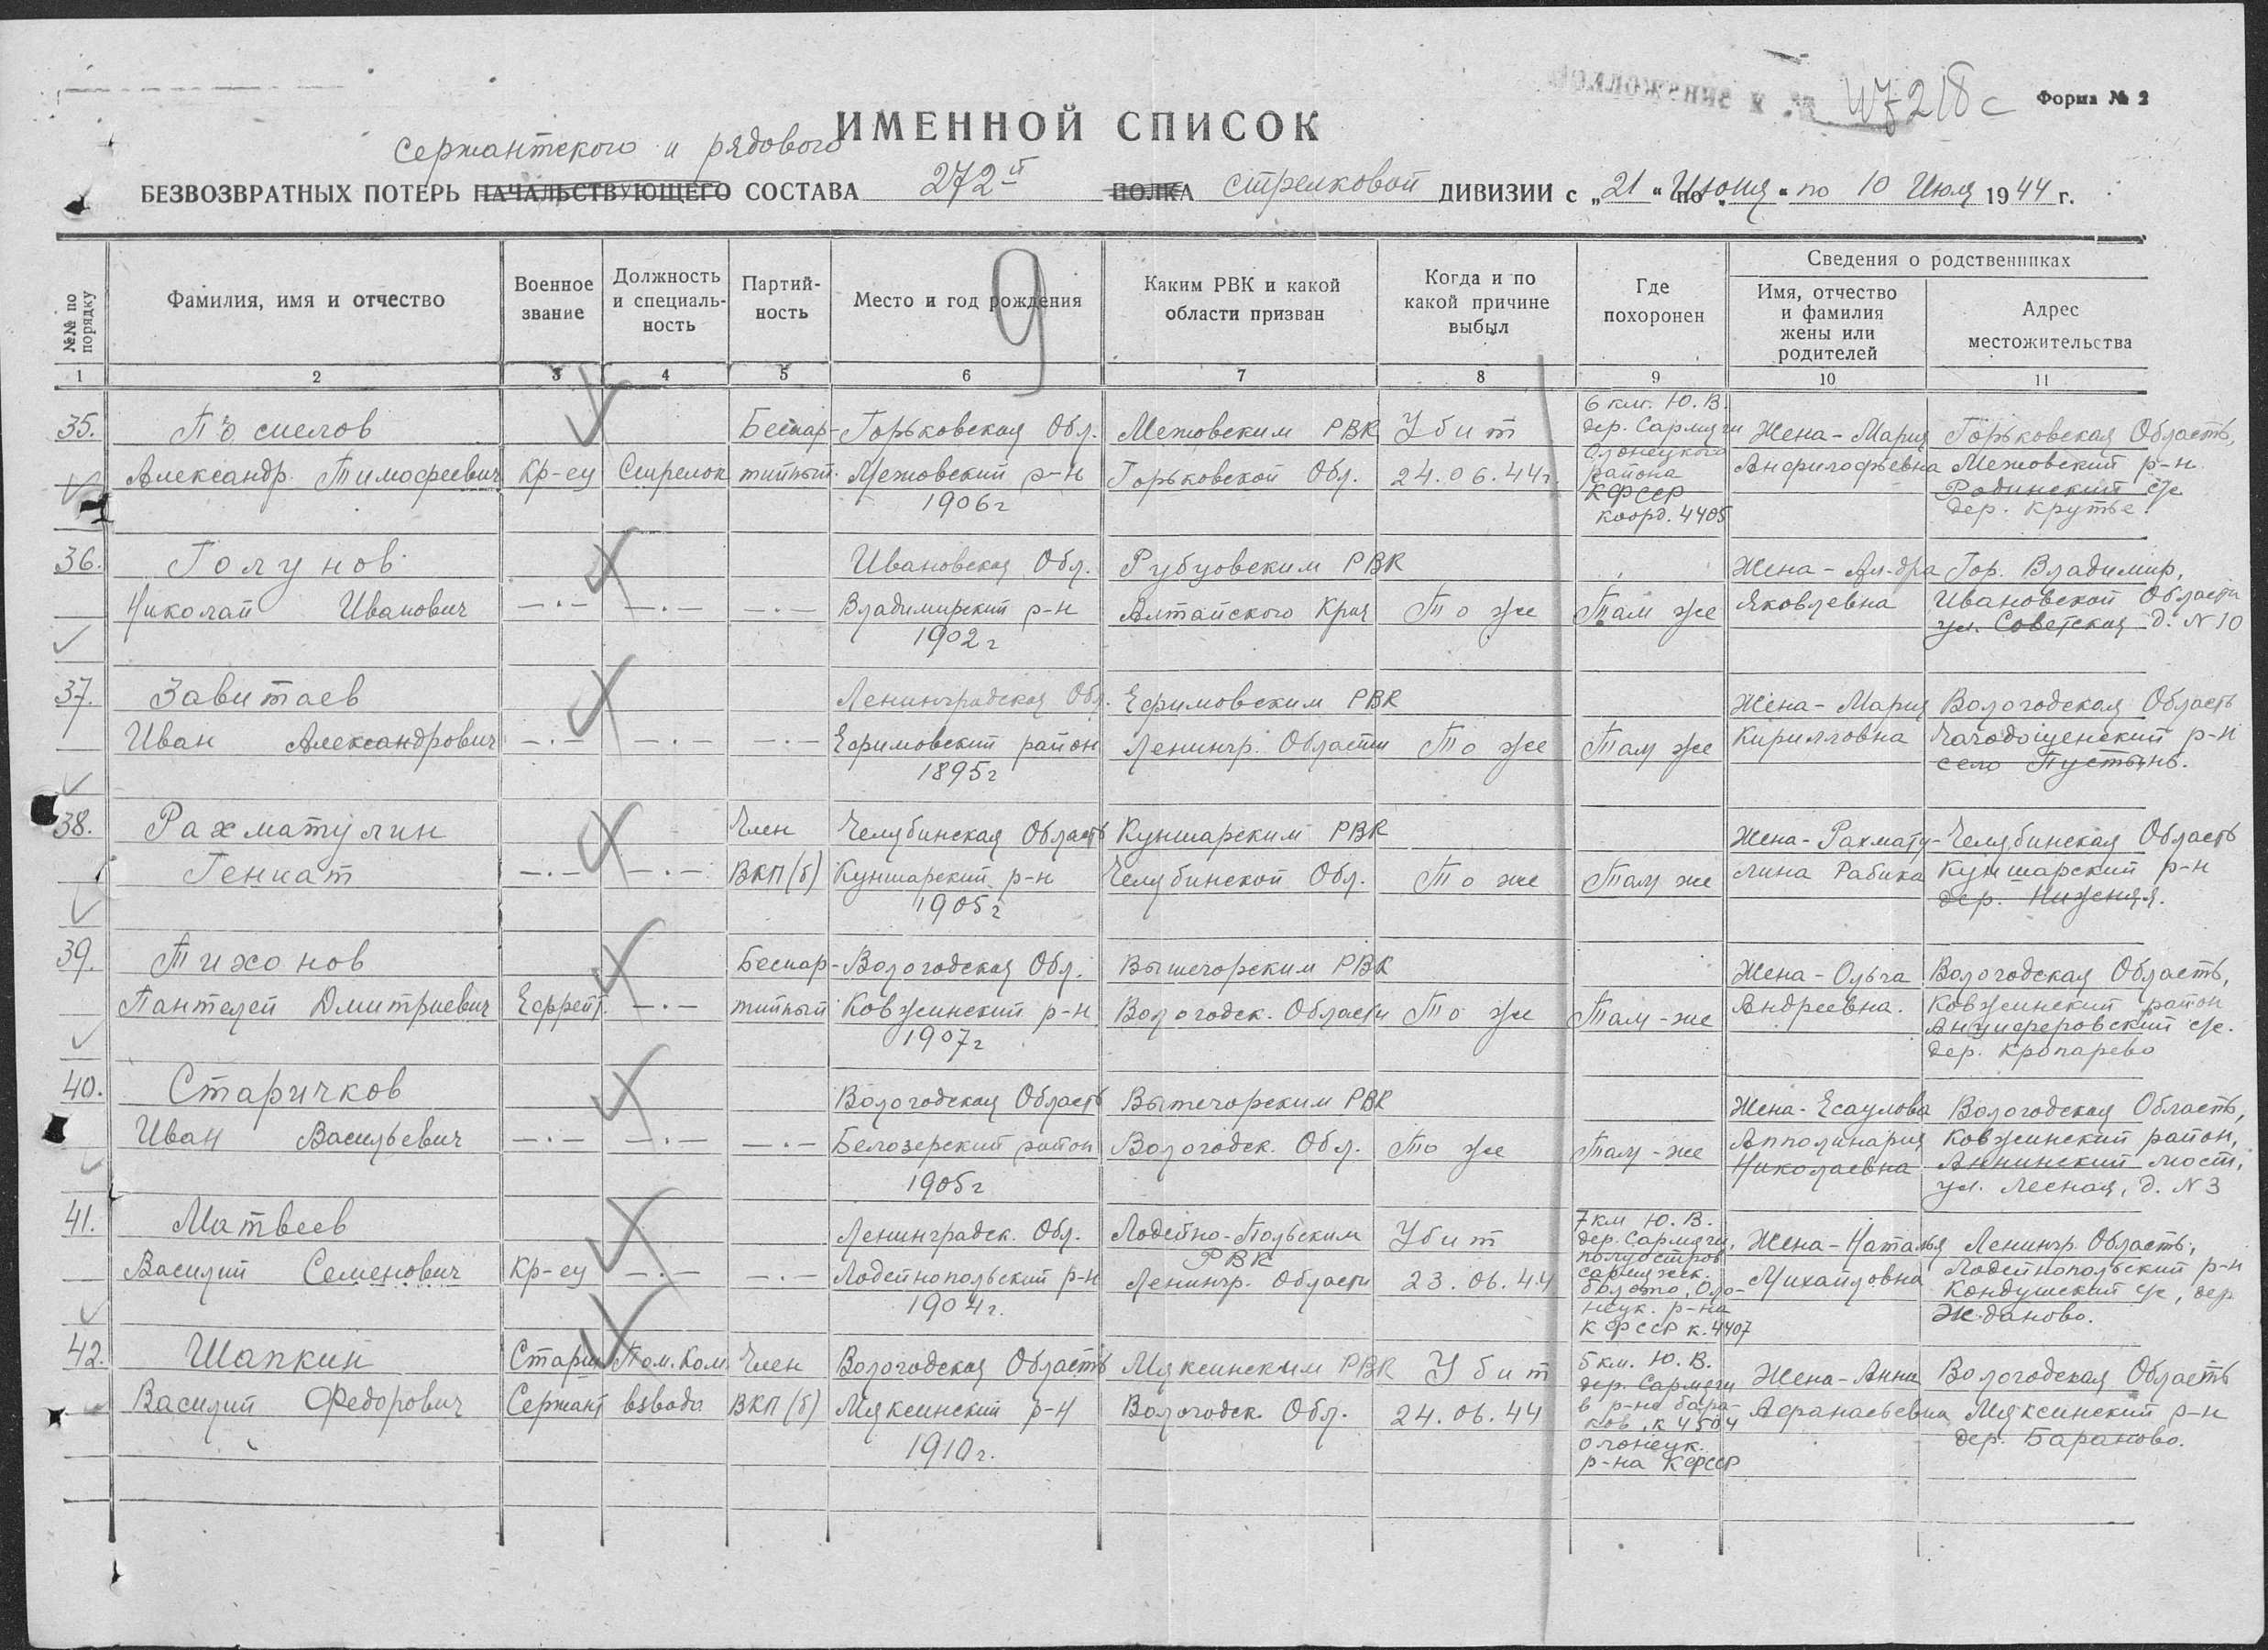 47218с
Форма № 2
ИМЕННОЙ СПИСОК
Сержантского и рядового
БЕЗВОЗВРАТНЫХ ПОТЕРЬ НАЧАЛЬСТВУЮЩЕГО СОСТАВА 272й ПОЛКА стрелковой ДИВИЗИИ с „21" Июня по 10 Июля 1944 г.
9
№№ по порядку
Фамилия, имя и отчество
Военное звание
Должность и специальность
Партийность
Место и год рождения
Каким РВК и какой области призван
Когда и по какой причине выбыл
Где похоронен
Сведения о родственниках
Имя, отчество и фамилия жены или родителей
Адрес местожительства
1 2 3 4 5 6 7 8 9 10 11
6 км. Ю.В.
35. Посмелов Беспар- Горьковская Обл. Межовским РВК Убит дер. Сармяги Жена - Мария Горьковская Область,
Олонецкого
Александр Тимофеевич Кр-ец Стрелок тийный. Межовский р-н Горьковской Обл. 24.06.44г. района Анфилофьевна Межовский р-н
1906г КФССР Родинский с/с
коорд. 4405 дер. Крутые.
36. Голунов Ивановская Обл. Рубцовским РВК Жена - Ал-дра Гор. Владимир,
Николай Иванович —·— —·— —·— Владимирский р-н Алтайского Края То же Там же Яковлевна Ивановской Области
1902г ул. Советская д. №10
37. Завитаев Ленинградская Обл. Ефимовским РВК Жена - Мария Вологодская Область
Иван Александрович —·— —·— —·— Ефимовский район Ленингр. Области То же Там же Кирилловна Чагодощенский р-н
1895г село Пустынь.
38. Рахматулин Член Челябинская Область Куншарским РВК Жена - Рахмату- Челябинская Область
Гениат —·— —·— ВКП(б) Куншарский р-н Челябинской Обл. То же Там же лина Рабика Куншарский р-н
1905г дер. Нижняя.
39. Тихонов Беспар- Вологодская Обл. Вытегорским РВК Жена - Ольга Вологодская Область,
Пантелей Дмитриевич Ефрейт. —·— тийный Ковжинский р-н Вологодск. Области То же Там-же Андреевна. Ковжинский район
1907г Анциферовский с/с.
дер. Кропарево
40. Старичков Вологодская Область Вытегорским РВК Жена - Есаулова Вологодская Область,
Иван Васильевич —·— —·— —·— Белозерский район Вологодск. Обл. То же Там-же Апполинария Ковжинский район,
Николаевна Аннинский мост,
1905г ул. Лесная, д. №3
7 км Ю.В.
41. Матвеев Ленинградск. Обл. Лодейно-Польским Убит дер. Сармяги, Жена - Наталья Ленингр. Область,
РВК полуостров
Василий Семенович Кр-ец —·— —·— Лодейнопольский р-н Ленингр. Области 23.06.44 сармяжск. Михайловна Лодейнопольский р-н
1904г. болото, Оло- Кондушский с/с, дер
нецк. р-на Жданово.
КФССР к.4407
42. Шапкин Старш. Пом.Ком. Член Вологодская Область Мяксинским РВК Убит 5 км. Ю.В. Жена - Анна Вологодская Область
дер. Сармяги
Василий Федорович Сержант взвода ВКП(б) Мяксинский р-н Вологодск. Обл. 24.06.44 в р-не бара- Афанасьевна Мяксинский р-н
ков, к 4504
1910г. олонецк. дер. Бараново.
р-на КФССР